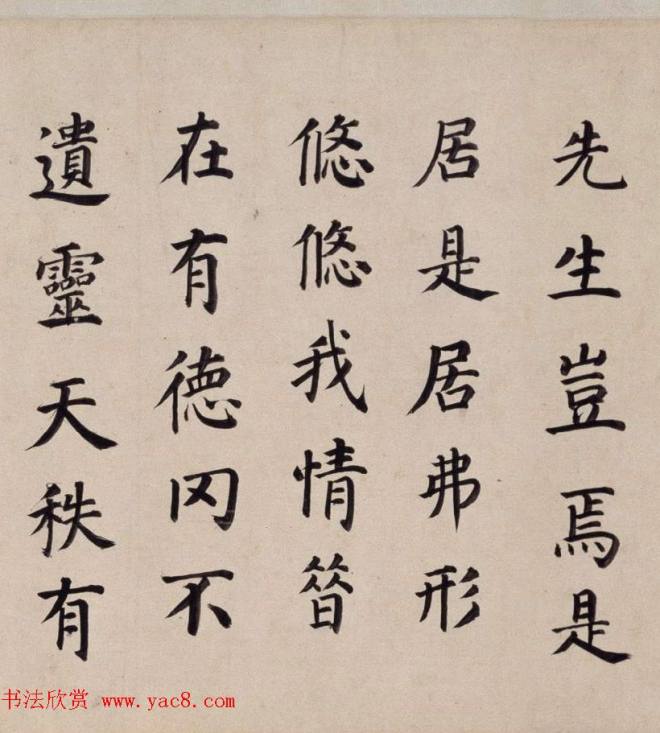 先生豈焉是
居是居弗形
悠悠我情㫺
在有德冈不
遺靈天秩有
书法欣赏 www.yac8.com